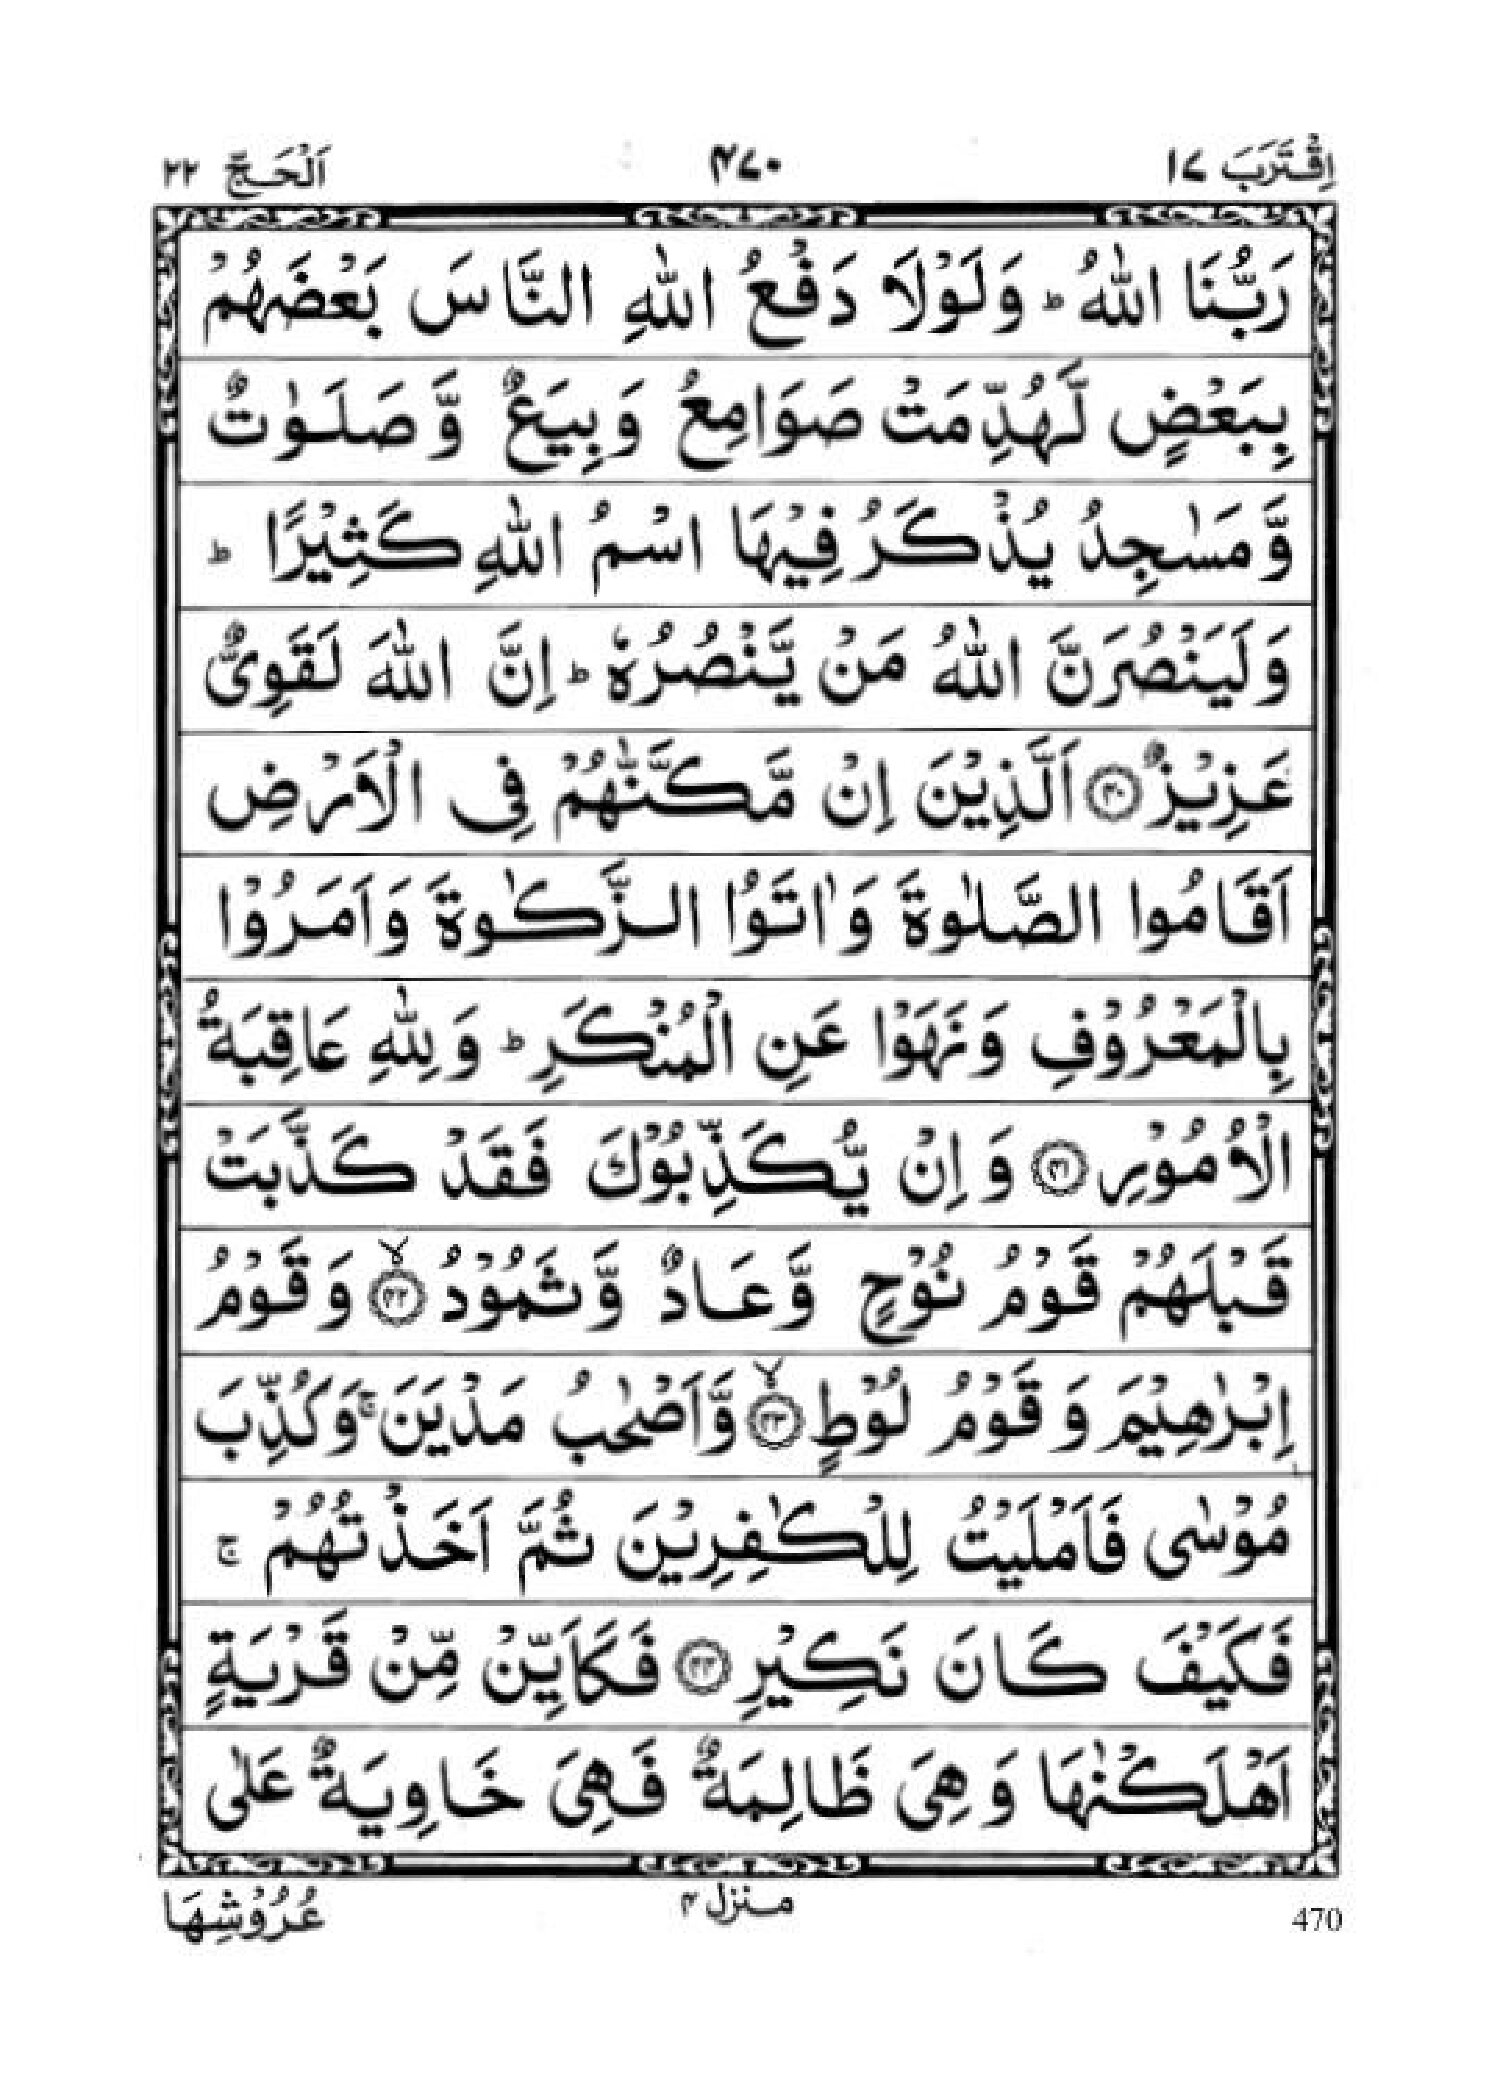 اِقْتَرَبَ ١٧ ٤٧٠ اَلْحَجّ ٢٢
رَبُّنَا اللّٰهُ ؕ وَلَوْلَا دَفْعُ اللّٰهِ النَّاسَ بَعْضَهُمْ
بِبَعْضٍ لَّهُدِّمَتْ صَوَامِعُ وَبِيَعٌ وَّصَلَوٰتٌ
وَّمَسٰجِدُ يُذْكَرُ فِيْهَا اسْمُ اللّٰهِ كَثِيْرًا ؕ
وَلَيَنْصُرَنَّ اللّٰهُ مَنْ يَّنْصُرُهٗ ؕ اِنَّ اللّٰهَ لَقَوِىٌّ
عَزِيْزٌ ۝٤٠ اَلَّذِيْنَ اِنْ مَّكَّنّٰهُمْ فِى الْاَرْضِ
اَقَامُوا الصَّلٰوةَ وَاٰتَوُا الزَّكٰوةَ وَاَمَرُوْا
بِالْمَعْرُوْفِ وَنَهَوْا عَنِ الْمُنْكَرِ ؕ وَلِلّٰهِ عَاقِبَةُ
الْاُمُوْرِ ۝٤١ وَاِنْ يُّكَذِّبُوْكَ فَقَدْ كَذَّبَتْ
قَبْلَهُمْ قَوْمُ نُوْحٍ وَّعَادٌ وَّثَمُوْدُ ۝٤٢ ۙ وَقَوْمُ
اِبْرٰهِيْمَ وَقَوْمُ لُوْطٍ ۝٤٣ ۙ وَّاَصْحٰبُ مَدْيَنَ ۚ وَكُذِّبَ
مُوْسٰى فَاَمْلَيْتُ لِلْكٰفِرِيْنَ ثُمَّ اَخَذْتُهُمْ ۚ
فَكَيْفَ كَانَ نَكِيْرِ ۝٤٤ فَكَاَيِّنْ مِّنْ قَرْيَةٍ
اَهْلَكْنٰهَا وَهِىَ ظَالِمَةٌ فَهِىَ خَاوِيَةٌ عَلٰى
عُرُوْشِهَا
منزل ٤
470